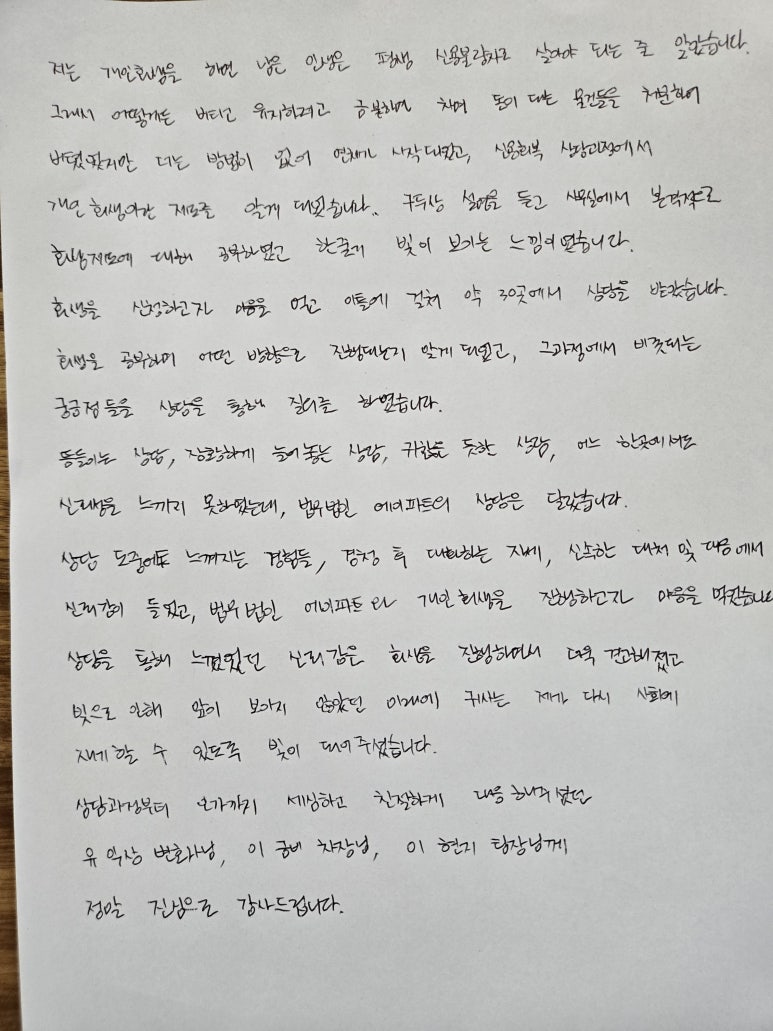 저는 개인회생을 하면 남은 인생은 평생 신용불량자로 살아야 되는 줄 알았습니다.
그래서 어떻게든 버티고 유지하려고 급급하며 차며 돈이 되는 물건들을 처분하여
버텼었지만 더는 방법이 없어 연체가 시작되었고, 신용회복 상담과정에서
개인회생이란 제도를 알게 되었습니다. 구두상 설명을 듣고 사무실에서 본격적으로
회생제도에 대해 공부하였고 한줄기 빛이 보이는 느낌이였습니다.
회생을 신청하고자 마음을 먹고 이틀에 걸쳐 약 30곳에서 상담을 받았습니다.
회생을 공부하며 어떤 방향으로 진행되는지 알게 되었고, 그과정에서 비롯되는
궁금점들을 상담을 통해 질의를 하였습니다.
뜸들이는 상담, 장황하게 늘어놓는 상담, 귀찮은 듯한 상담, 어느 한곳에서도
신뢰성을 느끼지 못하였는데, 법무법인 에이파트의 상담은 달랐습니다.
상담 도중에도 느껴지는 경험들, 경청 후 대화하는 자세, 신속한 대처 및 대응에서
신뢰감이 들었고, 법무법인 에이파트와 개인회생을 진행하고자 마음을 먹었습니다
상담을 통해 느꼈었던 신뢰감은 회생을 진행하면서 더욱 견고해졌고
빚으로 인해 앞이 보이지 않았던 미래에 귀사는 제가 다시 사회에
재기할 수 있도록 빛이 되어주셨습니다.
상담과정부터 인가까지 세심하고 친절하게 대응해주셨던
유익상 변호사님, 이금비 차장님, 이현지 팀장님께
정말 진심으로 감사드립니다.